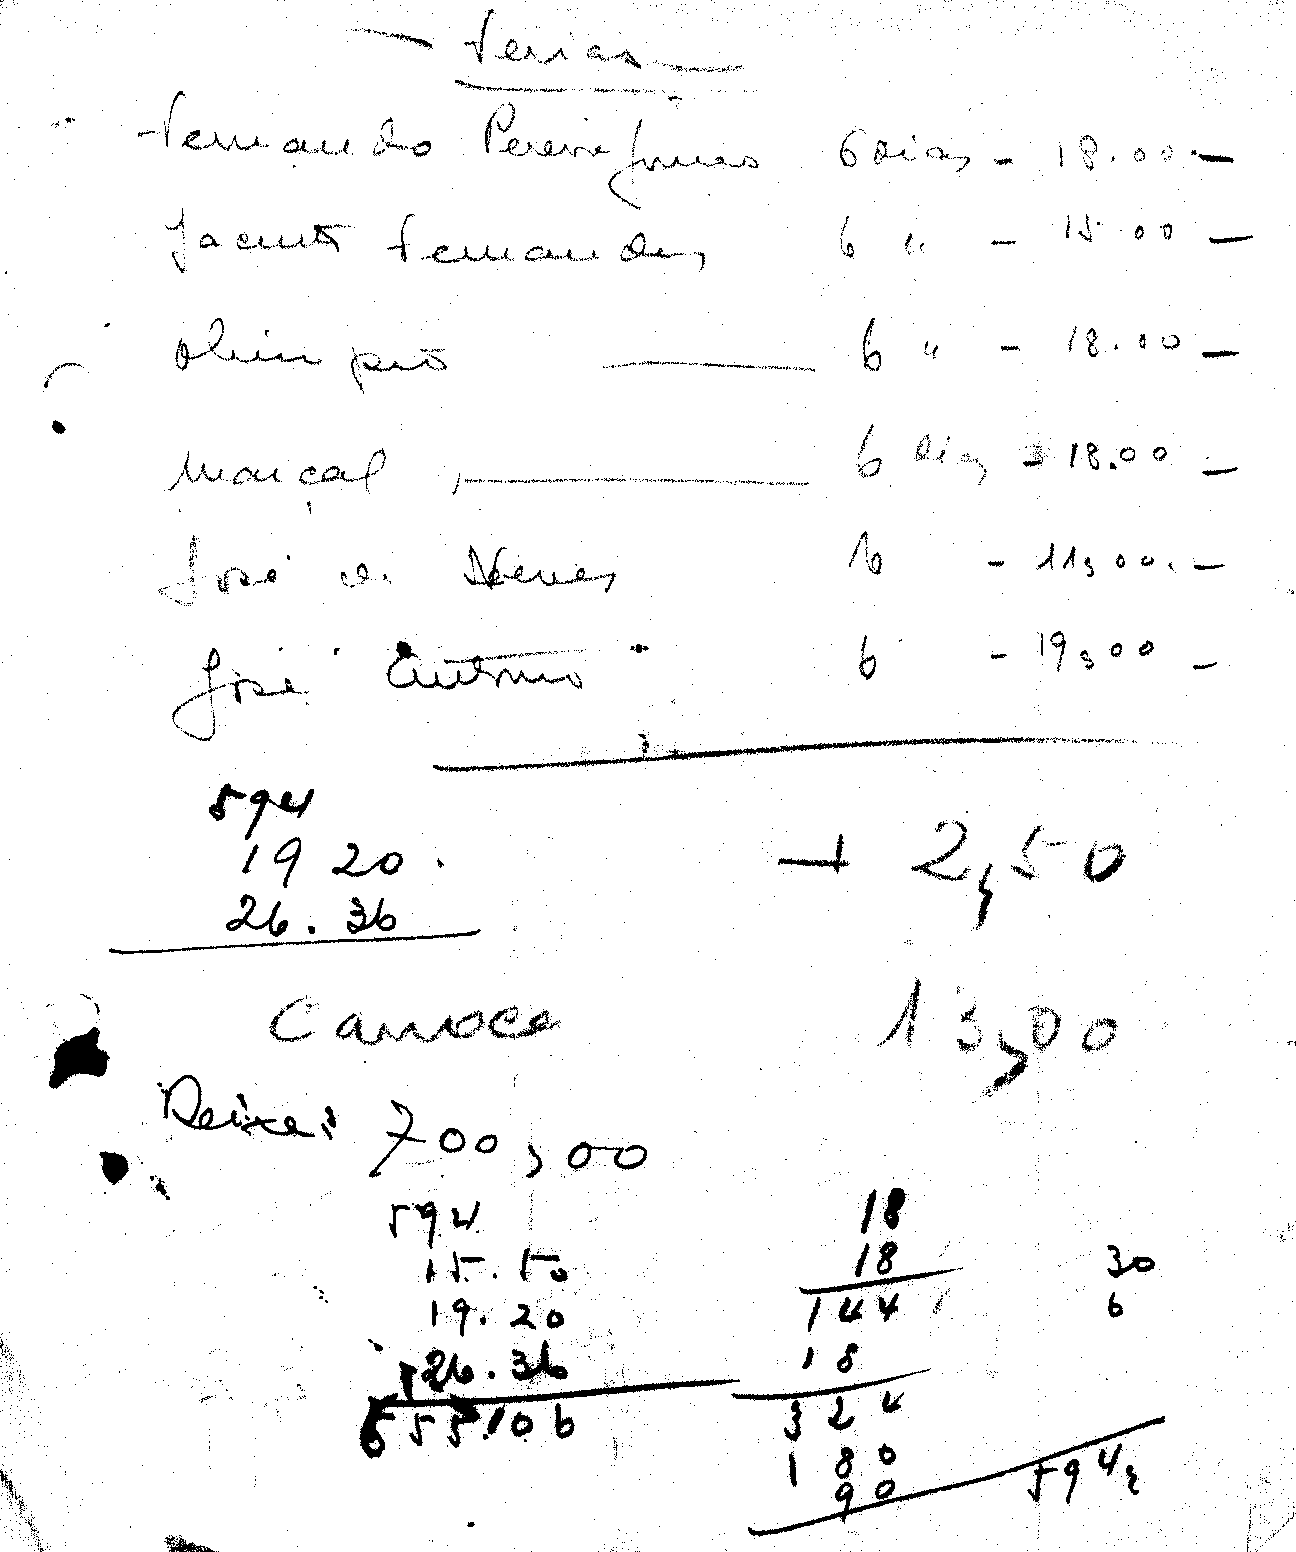 — Ferias —
Fernando Pereira Gomes 6 Dias - 18.00 —
Jacinto Fernandes 6 " - 15.00 —
Olimpio — 6 " - 18.00 —
Marçal — 6 Dias - 18.00 —
José Neves 6 - 11,00. —
José Antonio 6 - 19,00 —
594
19 20.
26.36
+ 2,50
Carroca 13,00
Deixei 700,00
594
15.50
19.20
26.36
655.106
18
18
144
18
324
180
90
594,
30
6